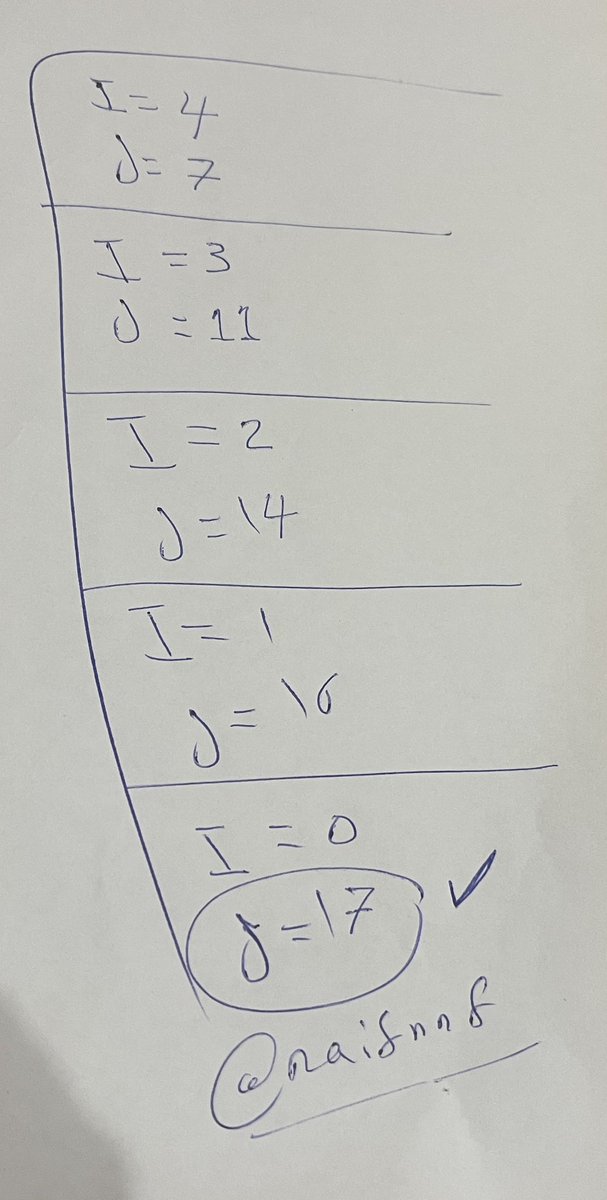 I = 4
J = 7
I = 3
J = 11
I = 2
J = 14
I = 1
J = 16
I = 0
J = 17 ✓
@naifnnf